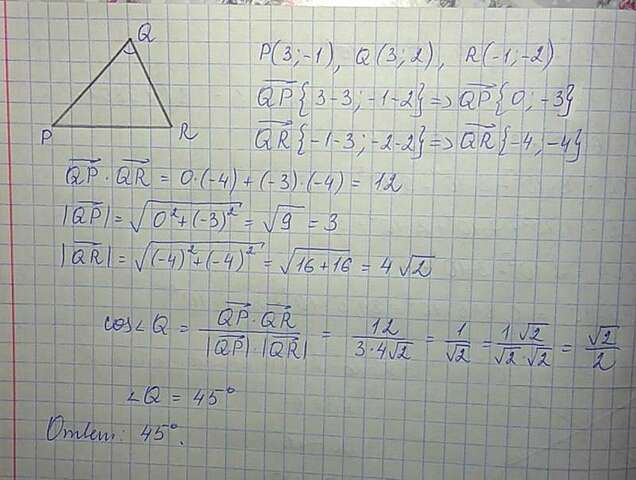 Q
P R
P(3;-1), Q(3;2), R(-1;-2)
QP⃗{3-3; -1-2} => QP⃗{0; -3}
QR⃗{-1-3; -2-2} => QR⃗{-4; -4}
QP⃗ · QR⃗ = 0·(-4) + (-3)·(-4) = 12
|QP⃗| = √(0²+(-3)²) = √9 = 3
|QR⃗| = √((-4)²+(-4)²) = √(16+16) = 4√2
cos∠Q = (QP⃗·QR⃗)/(|QP⃗|·|QR⃗|) = 12/(3·4√2) = 1/√2 = 1√2/(√2·√2) = √2/2
∠Q = 45°
Ответ: 45°.